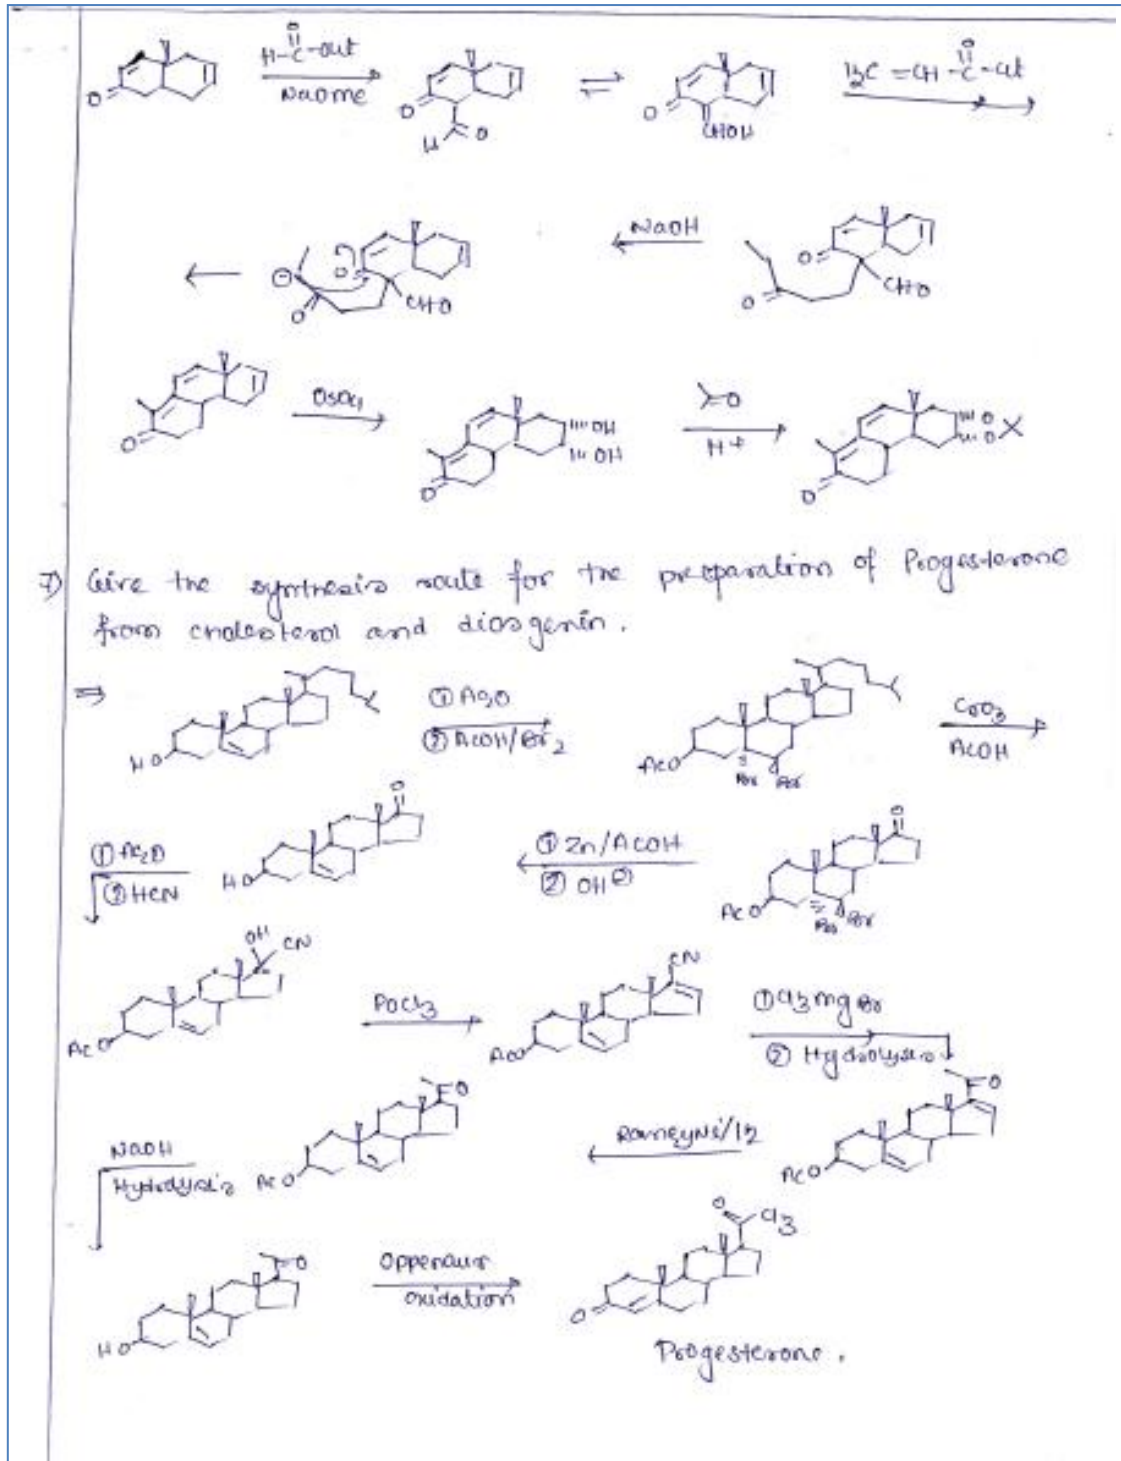 O
H-C-OEt
NaOMe
O
O
H
O
⇌
O
CHOH
O
H₂C=CH-C-Et
NaOH
O
O
CHO
O
O
CHO
O
OsO₄
OH
OH
O
O
H+
O
O
O
7) Give the synthesis route for the preparation of Progesterone
from cholesterol and diosgenin.
⇒
HO
① Ac₂O
② AcOH/Br₂
AcO
Br
Br
CrO₃
AcOH
① Ac₂O
② HCN
HO
O
① Zn/AcOH
② OH⊖
AcO
O
Br
Br
AcO
OH
CN
POCl₃
AcO
CN
① CH₃MgBr
② Hydrolysis
NaOH
Hydrolysis
AcO
O
Raney Ni/H₂
AcO
O
HO
O
Oppenaur
oxidation
O
O
CH₃
Progesterone.